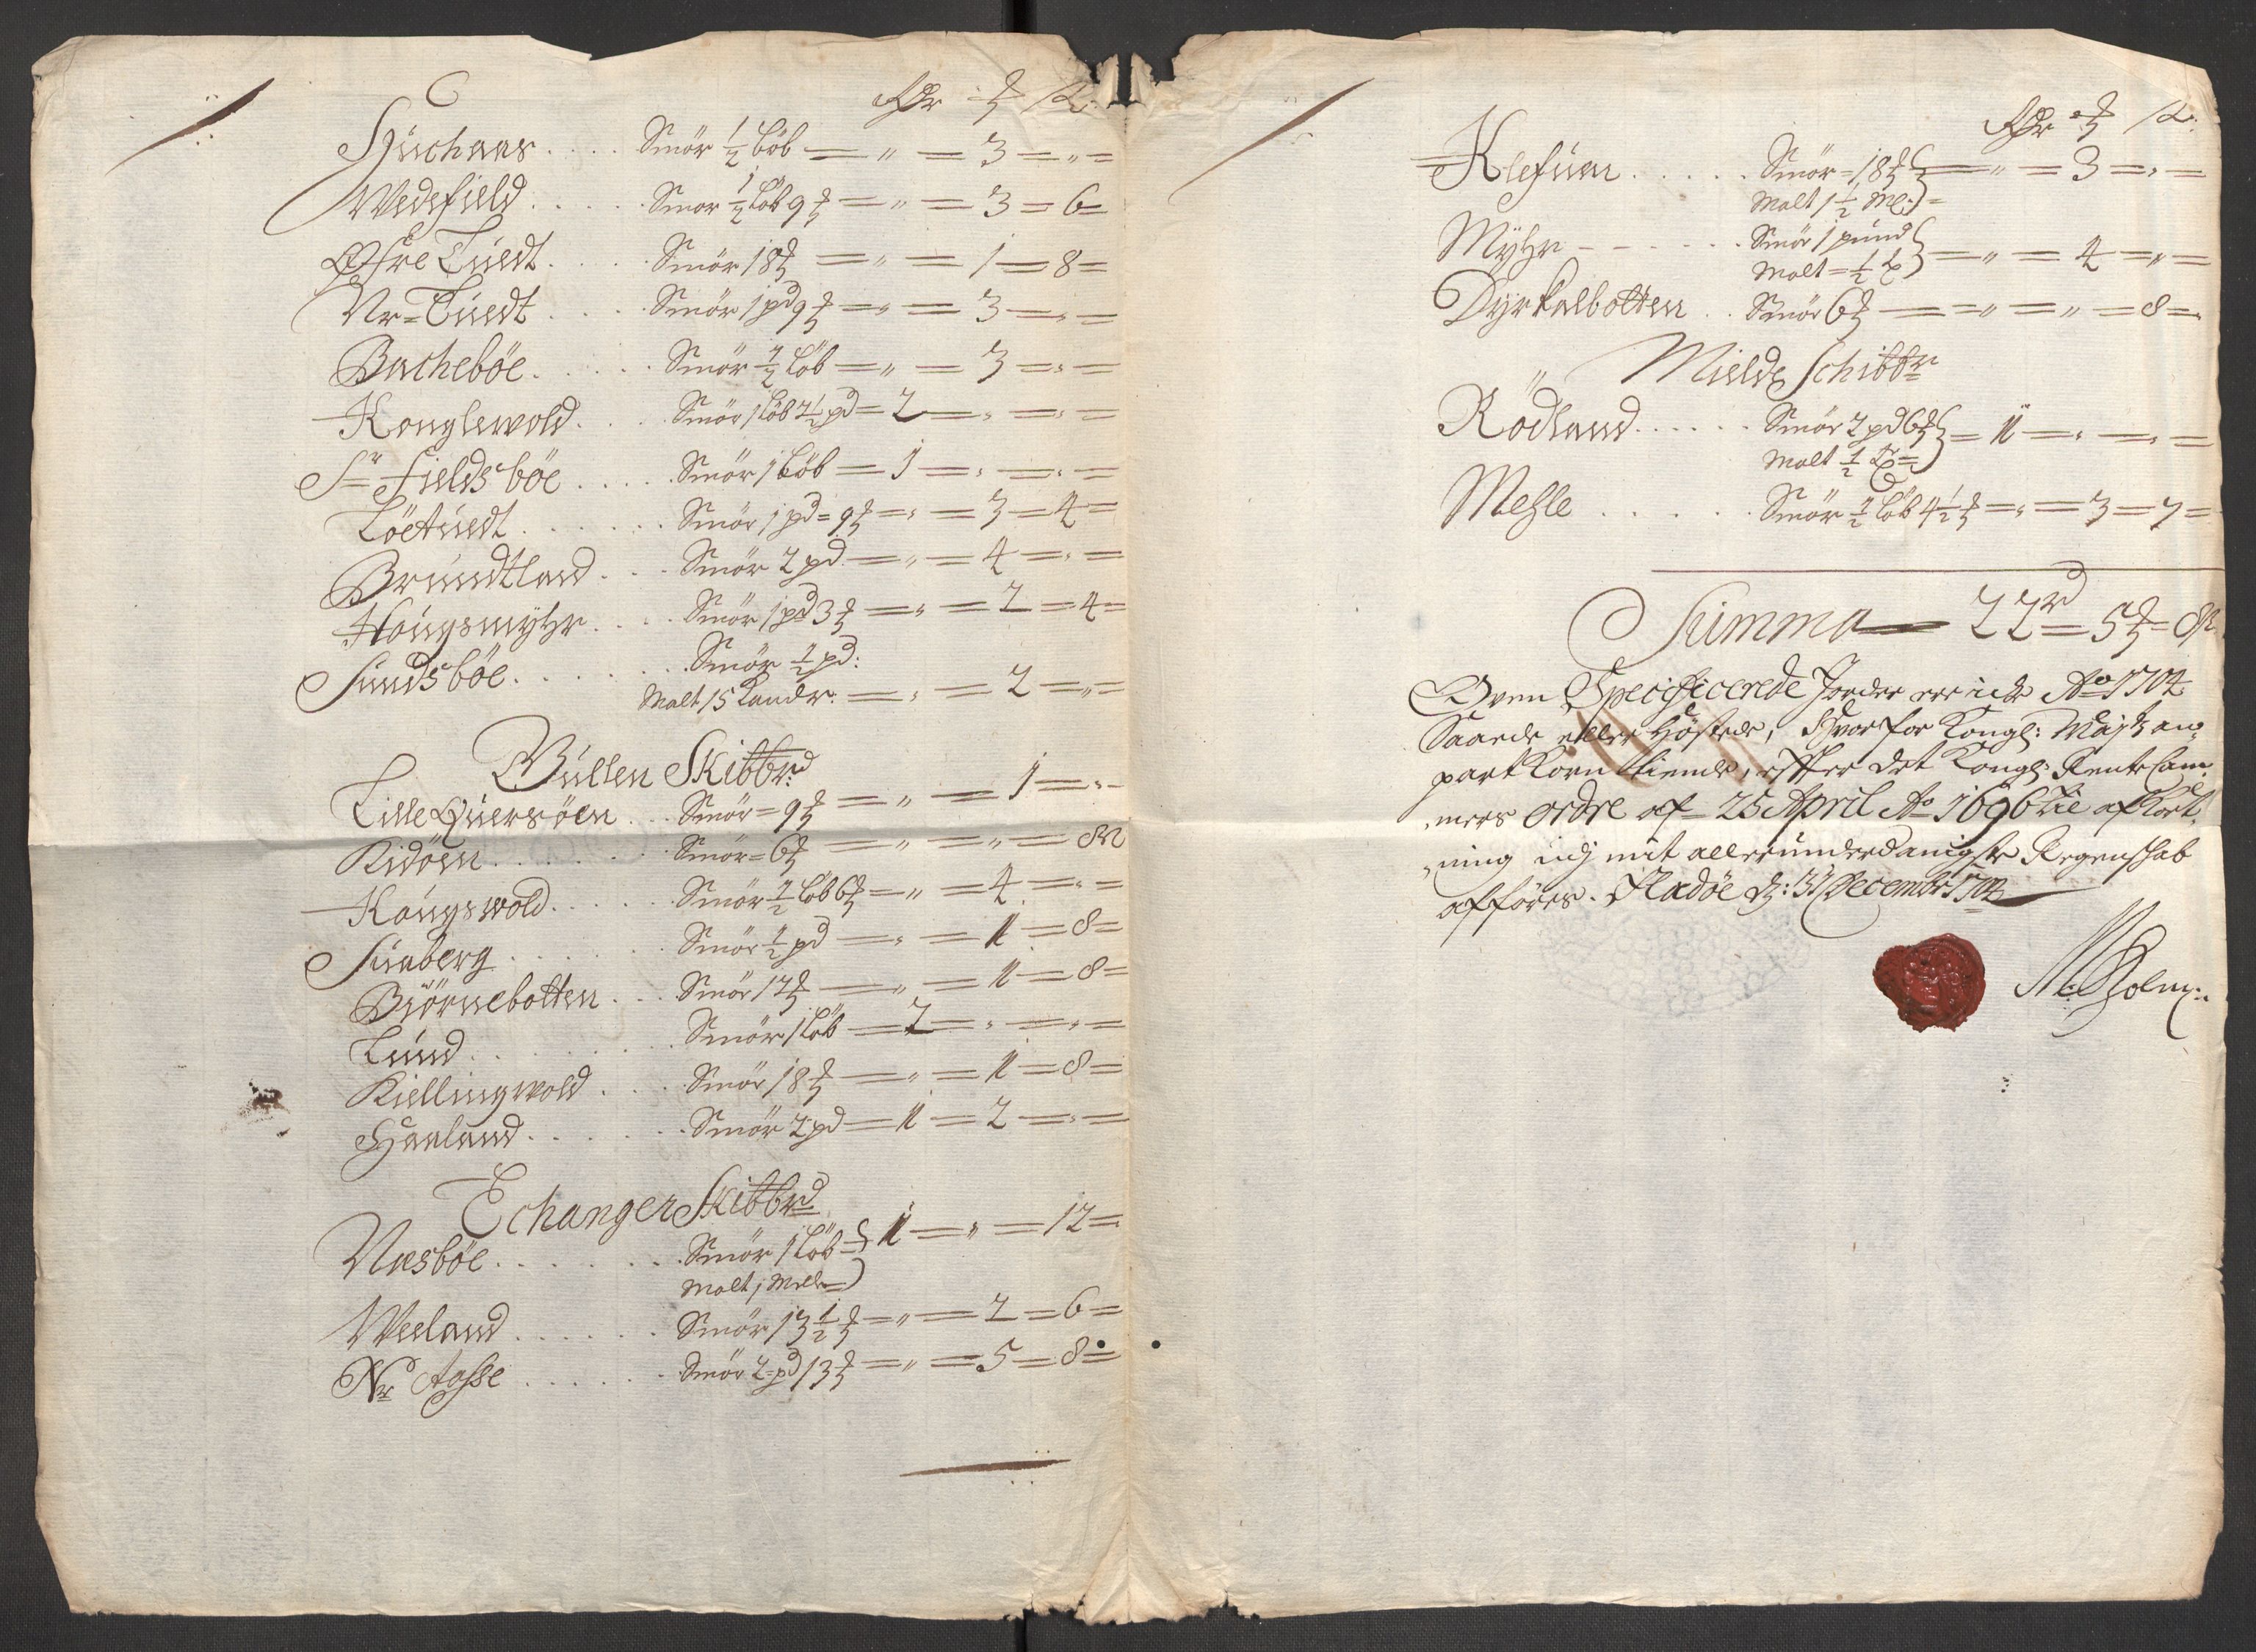 Rdr ꝑ s:
Huchaas . . . . Smör ½ Löb = " = 3 = " =
Wedefield . . . . . Smör ½ Löb 9 ꝑ = " = 3 = 6 =
Øfre Tuedt . . . . Smör 18 ꝑ = " = 1 = 8 =
Nr= Tuedt . . . . Smör 1 pd 9 ꝑ = " = 3 = " =
Bachebøe . . . . . Smör ½ Löb = " = 3 = " =
Konglevold . . . . Smör 1 Löb 2½ pd = 2 = " = " =
Sr= Fieldsbøe . . . . . Smör 1 Löb = 1 = " = " =
Löetuedt . . . . . . Smör 1 pd = 9 ꝑ = " = 3 = 4 =
Brundtland . . . Smör 2 pd = " = 4 = " =
Hougsmyhr . . . . Smör 1 pd 3 ꝑ = " = 2 = 4 =
Sundsbøe . . . . . . . Smör ½ pd:
Malt 15 Kandr: = " = 2 = " =
Bullen Skibbrd
Lille Quersöen . . . Smör = 9 ꝑ = " = 1 = " =
Kidöen . . . . . . . Smör = 6 ꝑ = " = " = 8 s
Hougswold . . . . . Smör ½ Löb 6 ꝑ = " = 4 = " =
Suaberg . . . . . . . Smör ½ pd = " = 1 = 8 =
Biörnebotten . . . Smör 12 ꝑ = " = 1 = 8 =
Lund . . . . . . . . Smör 1 Löb = 2 = " = " =
Kiellingwold . . . . Smör 18 ꝑ = " = 1 = 8 =
Haaland . . . . . . . Smör 2 pd = 1 = 2 = " =
Echanger Skibbrd
Næsbøe . . . . . . . Smör 1 Löb = } 1 = " = 12 =
Malt 1 Melle = )
Weeland . . . . . . Smör 13½ ꝑ = " = 2 = 6 =
Nr Aasse . . . . . . Smör 2 pd 13 ꝑ = " = 5 = 8 =
Rdr ꝑ s:
Klefuen . . . . . Smör = 18 ꝑ } = " = 3 = " =
Malt 1½ Ml: ) =
Myhr - - - . . . Smör 1 pund } = " = 4 = " =
Malt = ½ t )
Dyrkolbotten . . Smör 6 ꝑ = " = " = 8 =
Mielde Schibbr
Rödland . . . . . . Smör 2 pd 6 ꝑ } = 1 = " = " =
Malt ½ t = )
Mesle . . . . . . Smör ½ Löb 4½ ꝑ = " = 3 = 7 =
Summa = 22 rd = 5 ꝑ = 8 s
Oven Specificerede Jorder ere icke Ao 1704
Saaede eller Høstede, Hvorfor Kongl: Mayts an-
part Korn tiende, effter det Kongl: Rente Cam-
mers Ordre af 25 April Ao 1696 til afkort-
ning udj mit allerunderdanigste Regenskab
afføres. Fladøe d: 31 Decembr 1704
N: Holm: